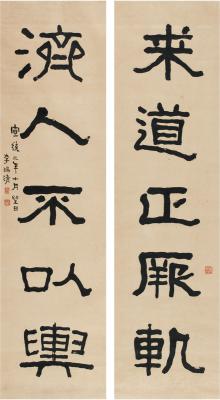 来道正厥軌
濟人不以輿
宣統元年十月望日
李瑞清